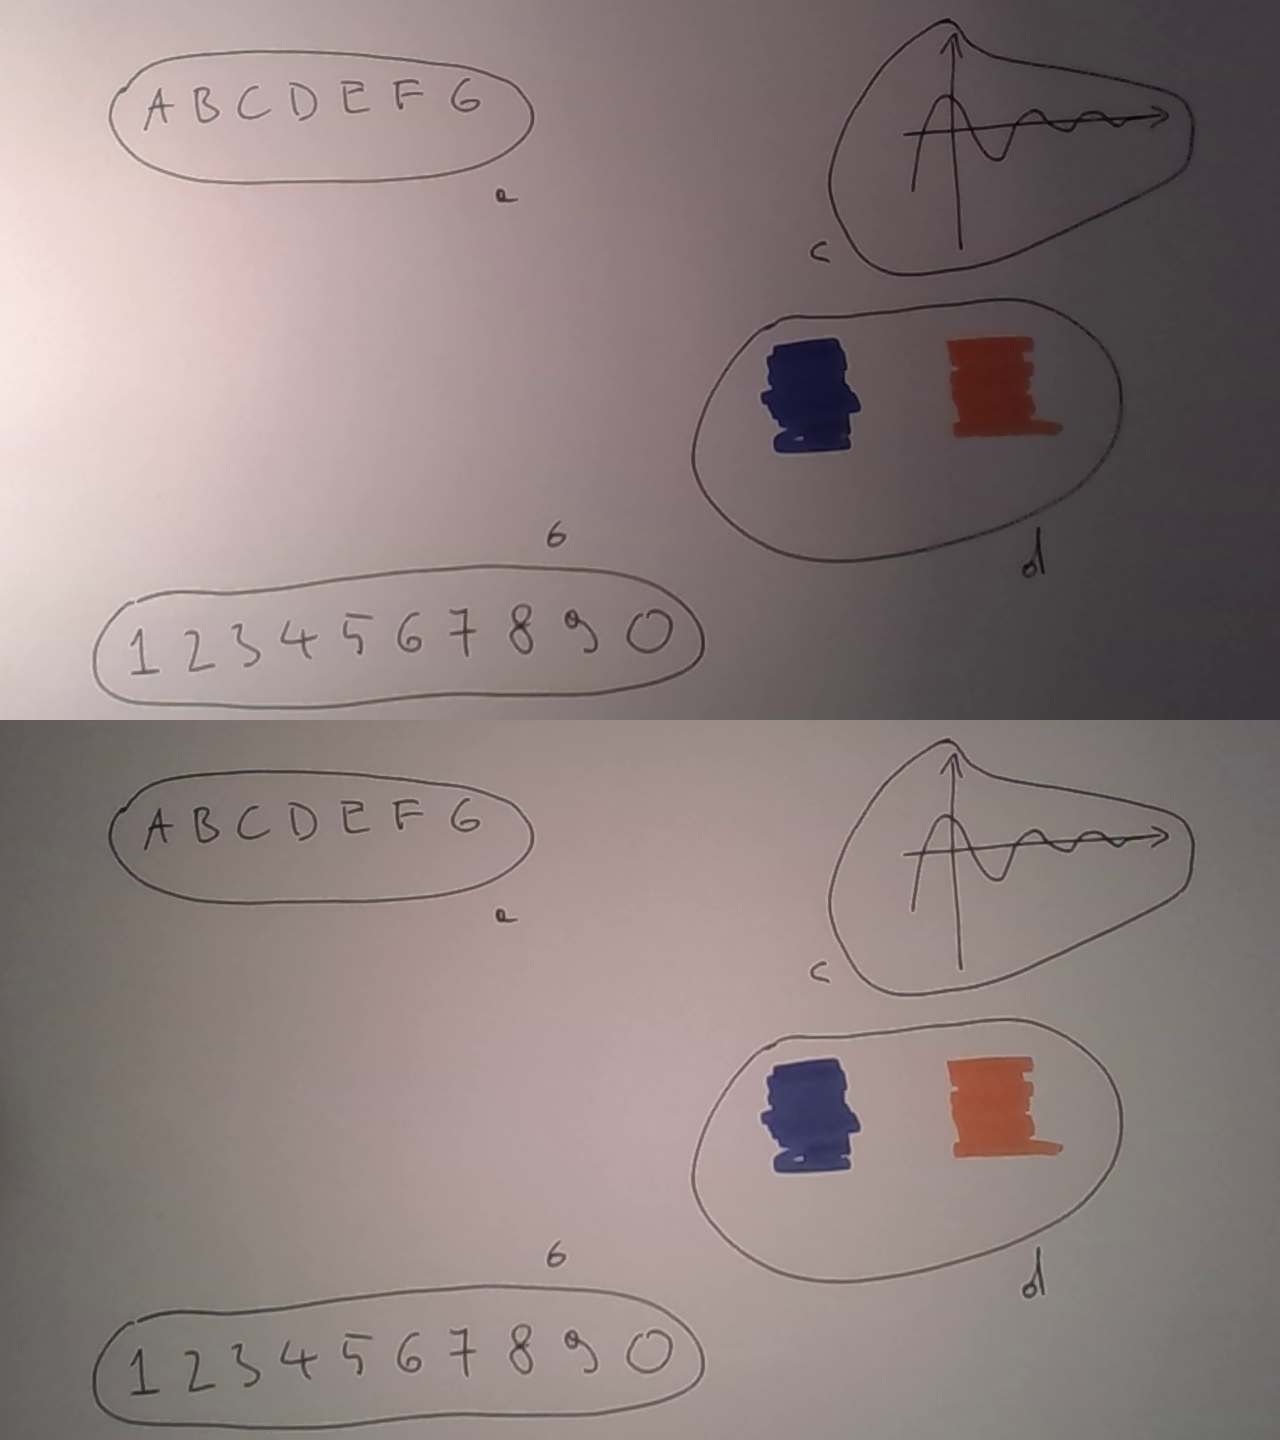 A B C D E F G
a
c
b
d
1 2 3 4 5 6 7 8 9 0
A B C D E F G
a
c
b
d
1 2 3 4 5 6 7 8 9 0